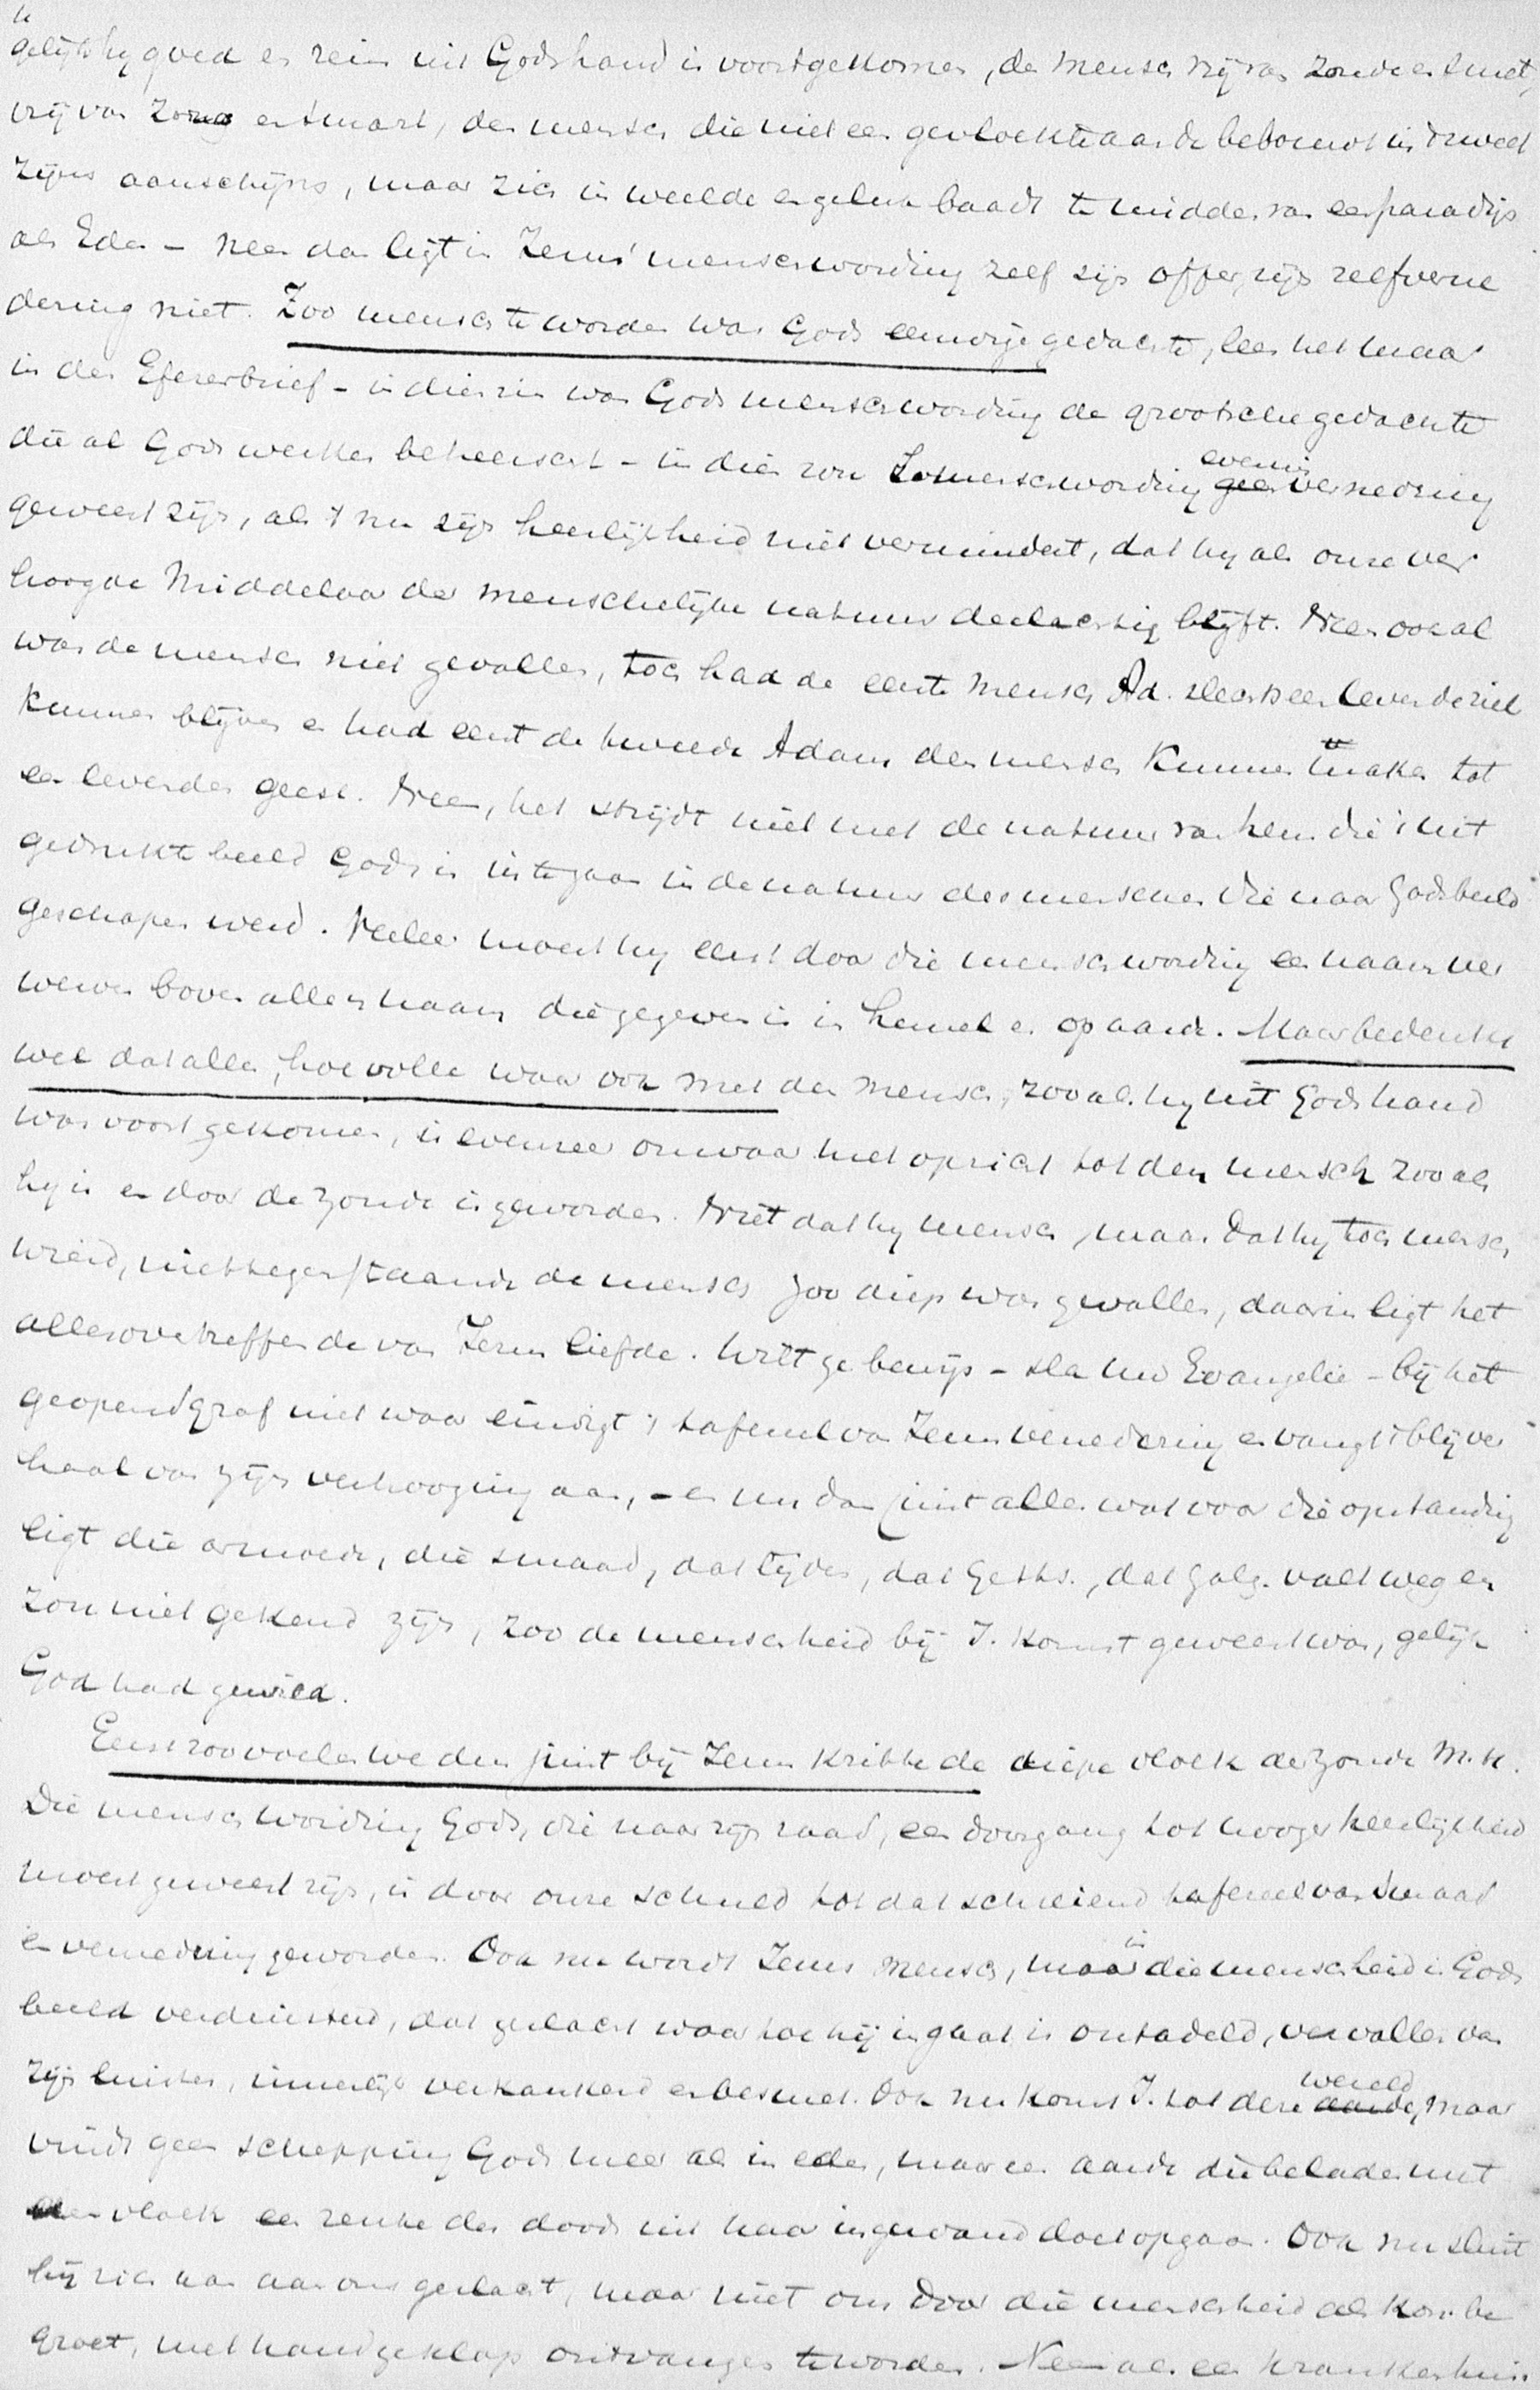 gelijk hy goed en rein uit Gods hand is voortgekomen, de mensch vrij van zonde en smet,
vrij van zorg en smart, den mensch die niet een gevloekte aarde bebouwt in 't zweet
zijns aanschijns, maar zich in weelde en geluk baadt te midden van een paradijs
als Eden – neen dan ligt in Jezus' menschwording zelf zijn offer, zijn zelfverne
dering niet. Zoo mensch te worden was Gods eeuwige gedachte, lees het maar
in den Efezerbrief – in dien zin was Gods menschwording de grootsche gedachte
die al Gods werken beheerscht – in dien zou menschwording evenmin vernedering
geweest zijn, als 't nu zijn heerlijkheid niet vermindert, dat hy als onze ver
hoogde Middelaar der menschelijke natuur deelachtig blijft. Neen ook al
was de mensch niet gevallen, toch had de eerste mensch Ad. slechts een levende ziel
kunnen blijven en had eerst de tweede Adam den mensch kunnen maken tot
een levenden geest. Neen, het strijdt niet met de natuur van hem die 't uit
gedrukte beeld Gods is in te gaan in de natuur des menschen die naar Gods beeld
geschapen werd. Veeleer moest hy eerst door die menschwording een naam ver
werven boven allen naam die gegeven is in hemel en op aarde. Maar bedenkt
wel dat alles, hoe volle waar ook met den mensch, zooals hy uit Gods hand
was voortgekomen, is evenzeer onwaar met opzicht tot den mensch zooals
hy is en door de zonde is geworden. Niet dat hy mensch, maar dat hy toch mensch
wierd, niettegenstaande de mensch zoo diep was gevallen, daarin ligt het
allesovertreffende van Jezus liefde. Wilt ge bewijs – sla uw Evangelie – bij het
geopend graf niet waar eindigt 't tafereel van Jezus vernedering en vangt 't blij ver
haal van zijn verhooging aan, – en nu dan juist alles wat voor die opstanding
ligt die armoede, die smaad, dat lijden, dat Geths., dat Golg. valt weg en
zou niet gekend zijn, zoo de menschheid bij J. komst geweest was, gelijk
God had gewild.
Eerst zoo voelen we dus juist bij Jezus kribbe de diepe vloek der zonde M. H.
Die menschwording Gods, die naar zijn raad, een doorgang tot hooger heerlijkheid
moest geweest zijn, is door onze schuld tot dat schreiend tafereel van smaad
en vernedering geworden. Ook nu wordt Jezus mensch, maar in die menschheid is Gods
beeld verduisterd, dat geslacht waartoe hij ingaat is ontadeld, vervallen van
zijn luister, innerlijk verkankerd en besmet. Ook nu komt J. tot deze wereld, maar
vindt geen schepping Gods meer als in eden, maar een aarde die beladen met
den vloek een reuke des doods uit haar ingewand doet opgaan. Ook nu sluit
hij zich aan aan ons geslacht, maar niet om door die menschheid als Kon. be
groet, met handgeklap ontvangen te worden. Neen als een krankenhuis